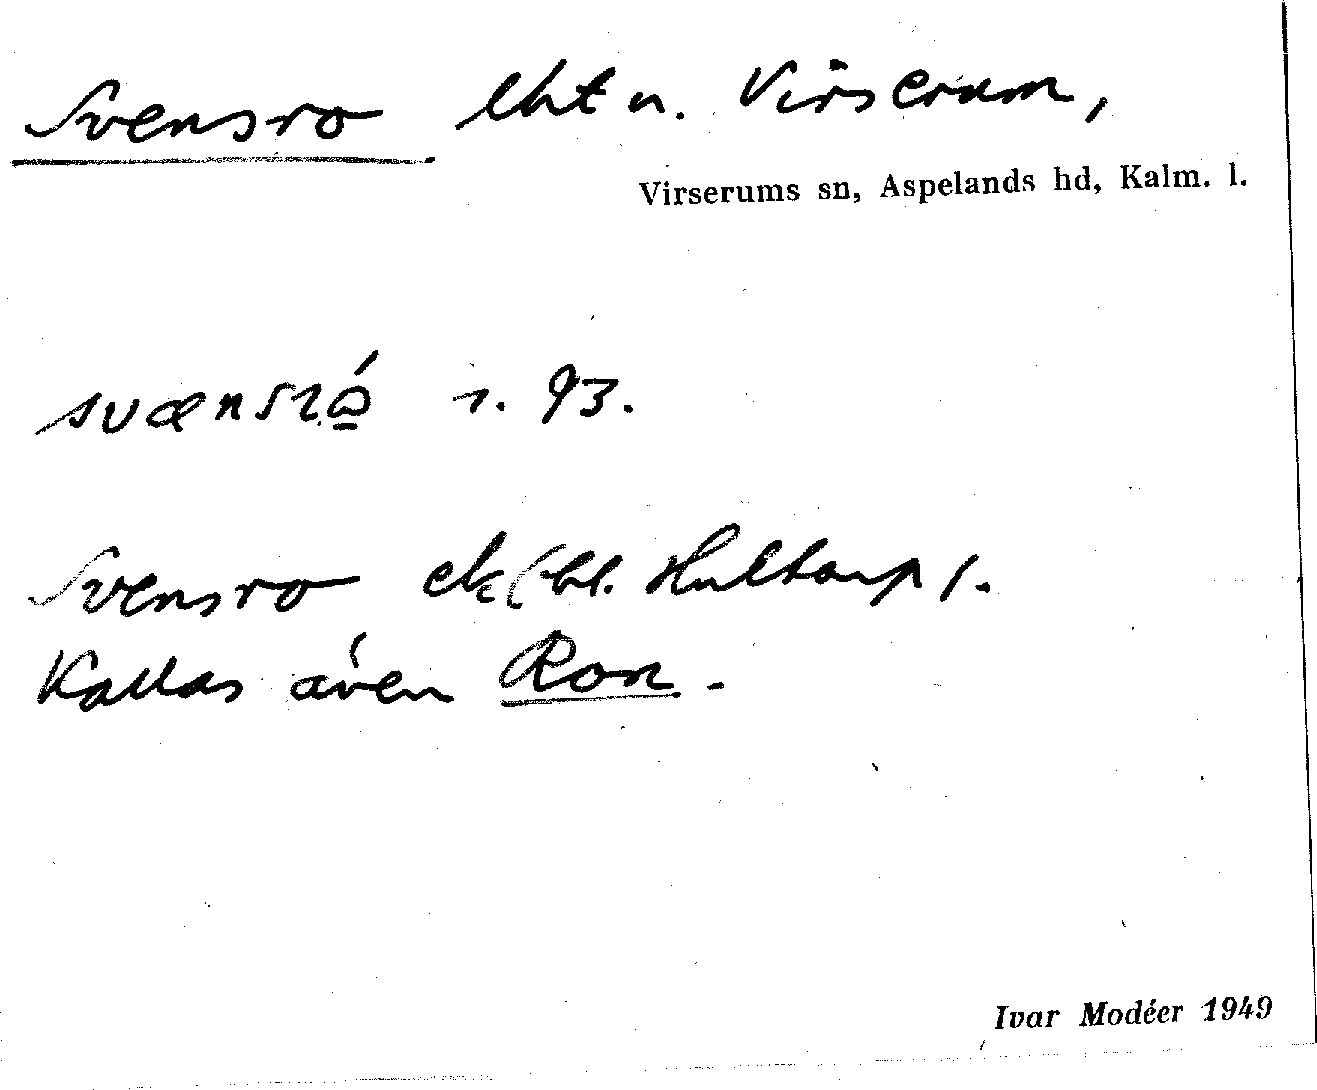 Svensro lht u. Virserum,
Virserums sn, Aspelands hd, Kalm. l.
svænsró 1. 93.
Svensro ek (bl. Hultarp).
Kallas även Ron.-
Ivar Modéer 1949